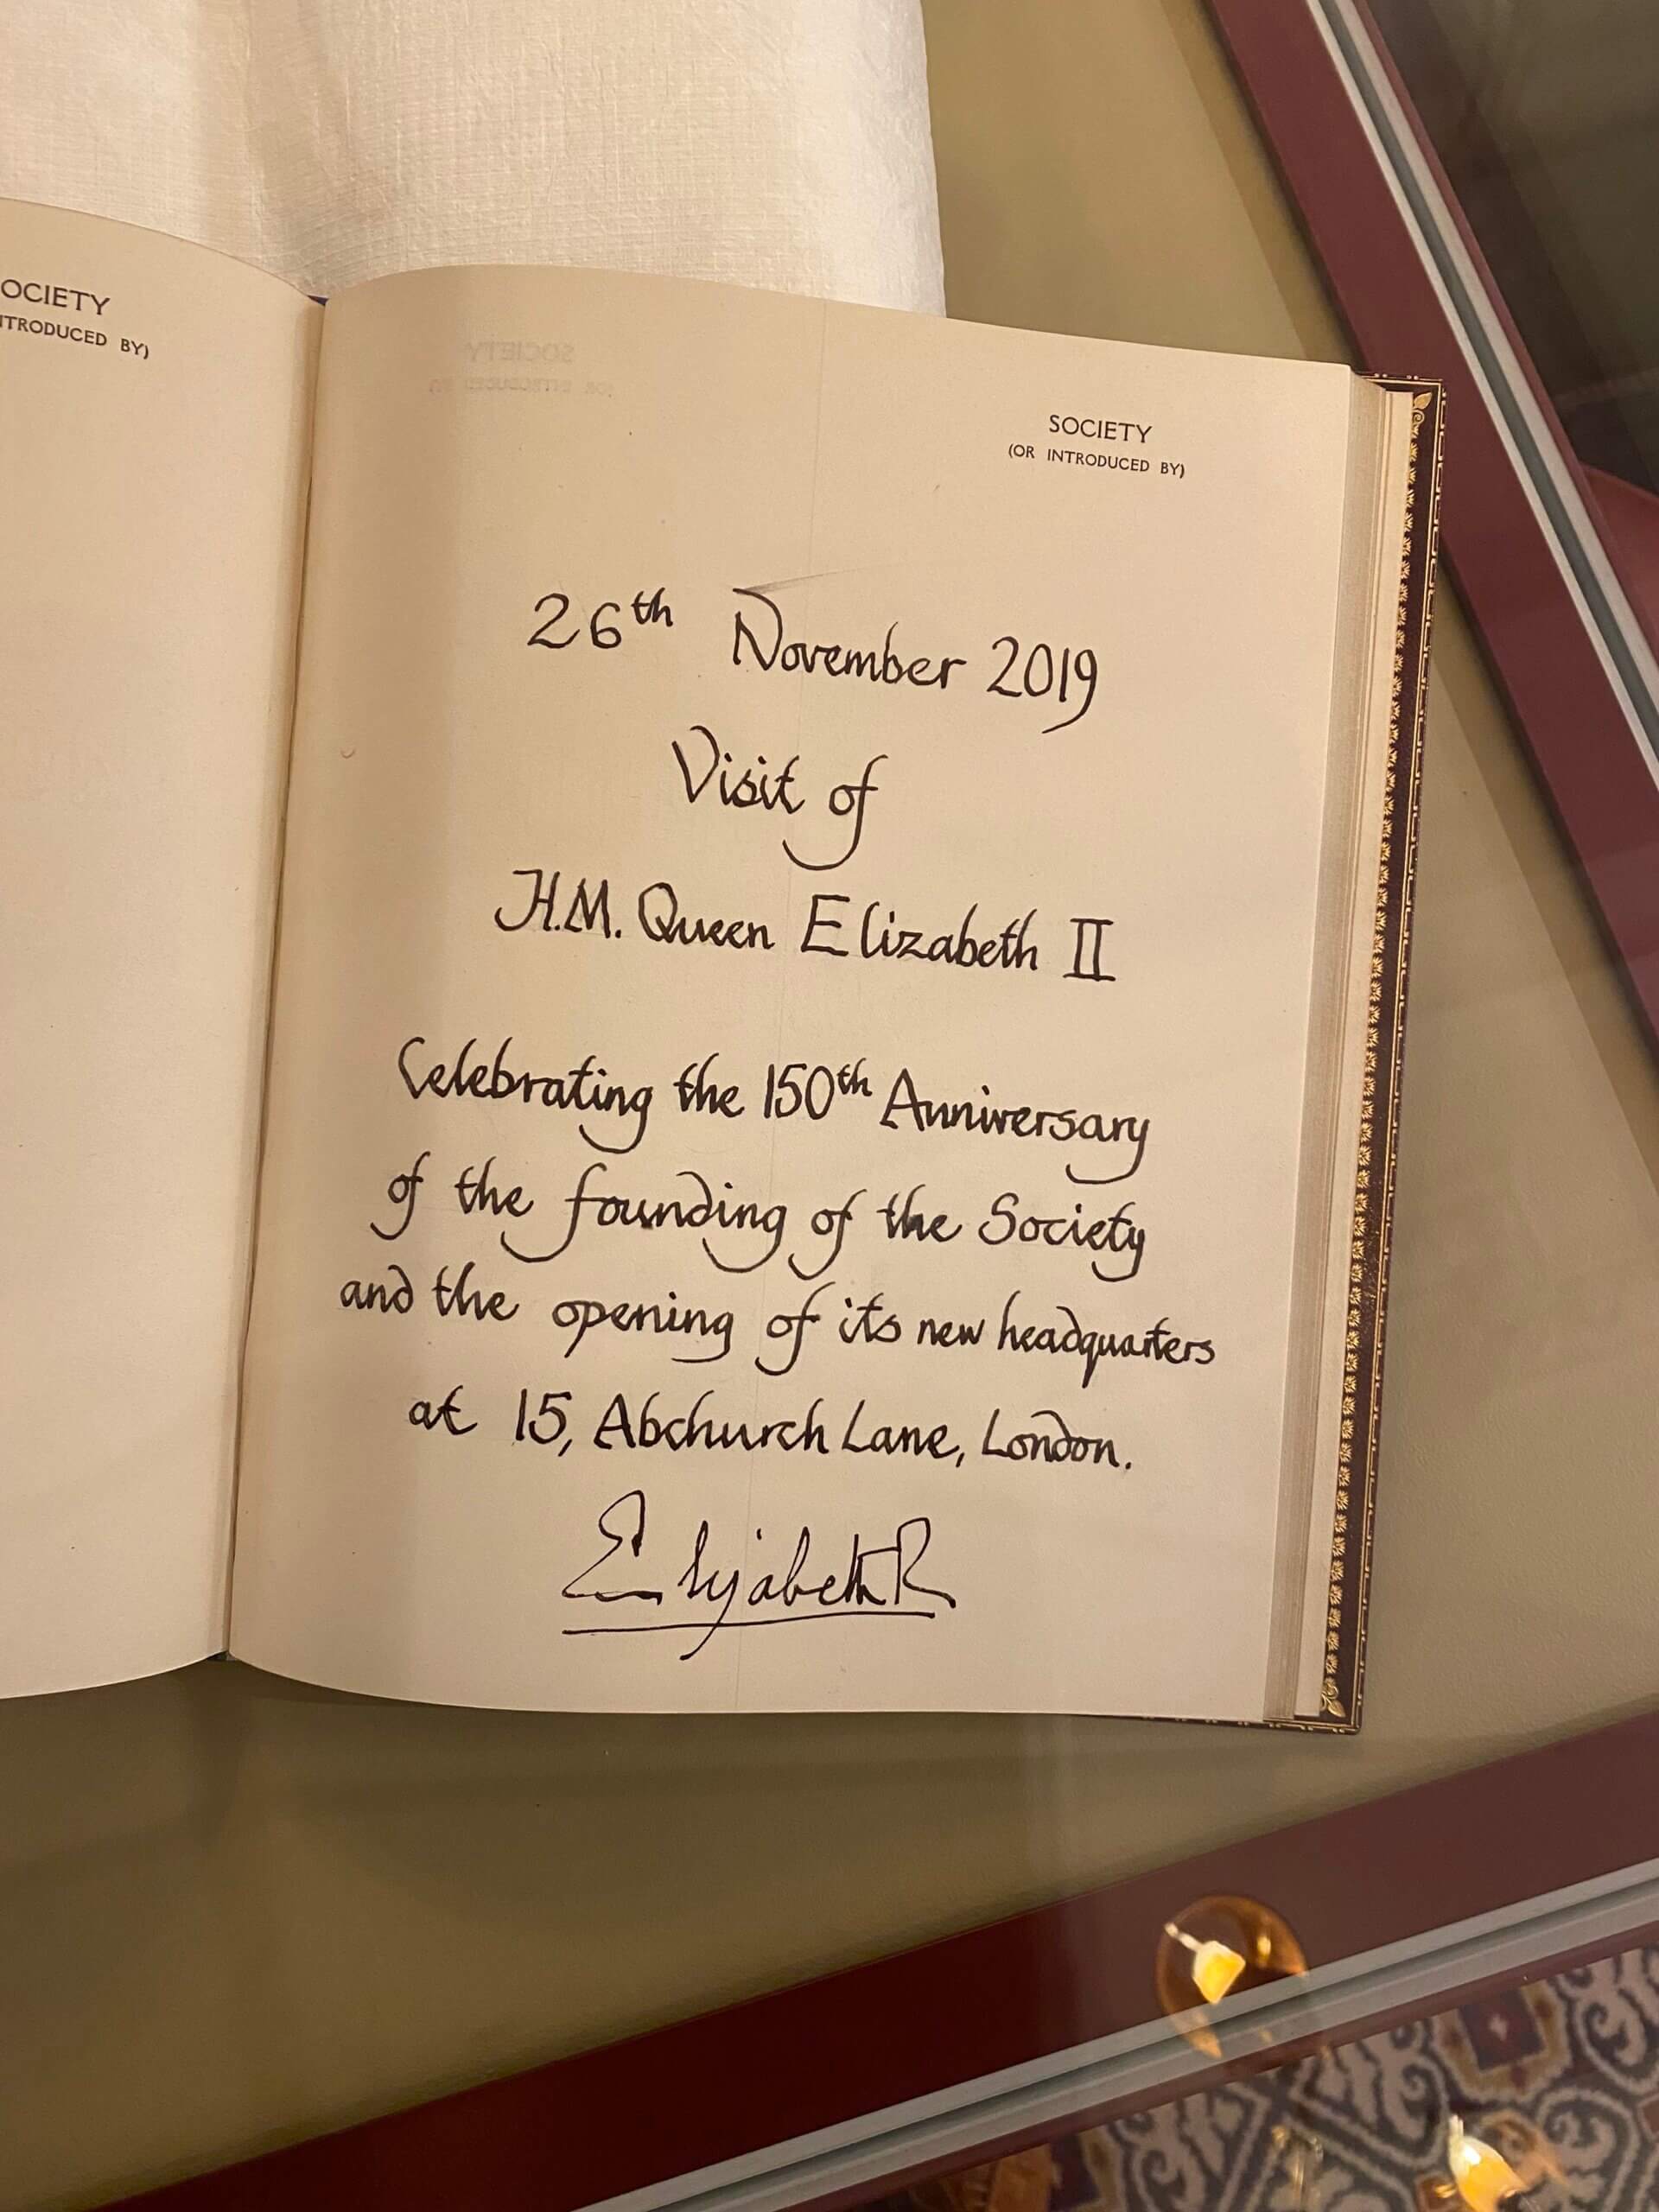 OCIETY
NTRODUCED BY)
SOCIETY
(OR INTRODUCED BY)
26th November 2019
Visit of
H.M. Queen Elizabeth II
Celebrating the 150th Anniversary
of the founding of the Society
and the opening of its new headquarters
at 15, Abchurch Lane, London.
Elizabeth R